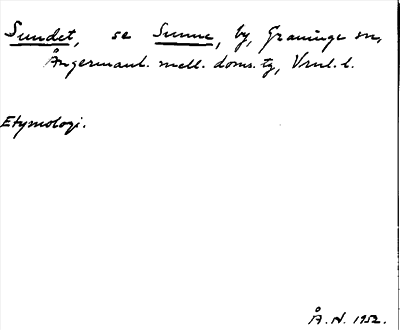 Sundet, se Sunne, by, Graninge sn,
Ångermanl. mell. doms. tg, Vnrl. l.
Etymologi.
Å. N. 1952.